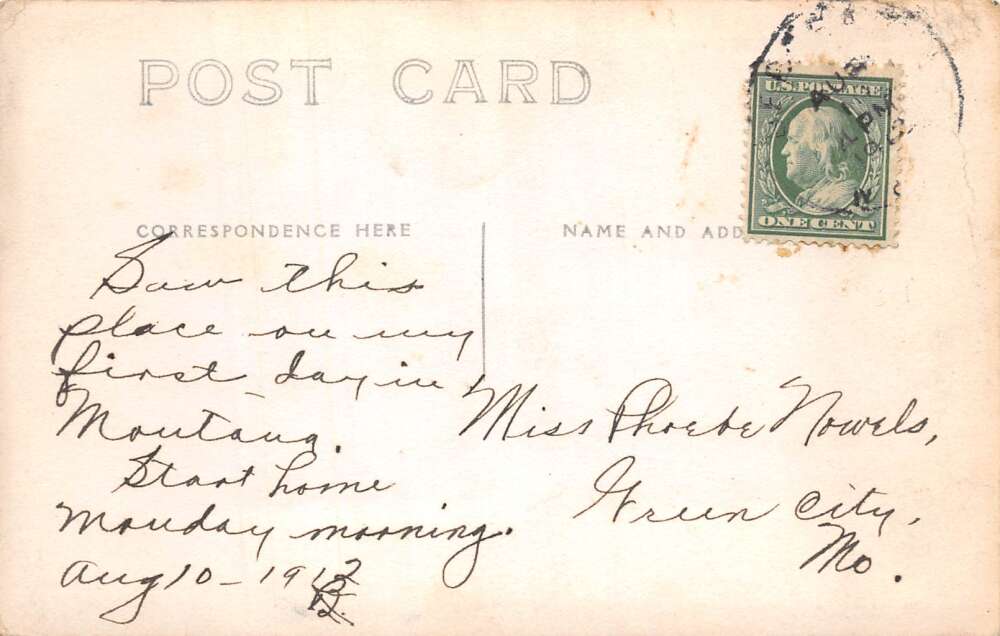 POST CARD
U.S. POSTAGE
ONE CENT
AUG
PM
CORRESPONDENCE HERE
NAME AND ADD
Saw this
place on my
first day in
Montana.
Start home
Monday morning.
Aug 10 - 1912
Miss Phoebe Nowels,
Green City,
Mo.